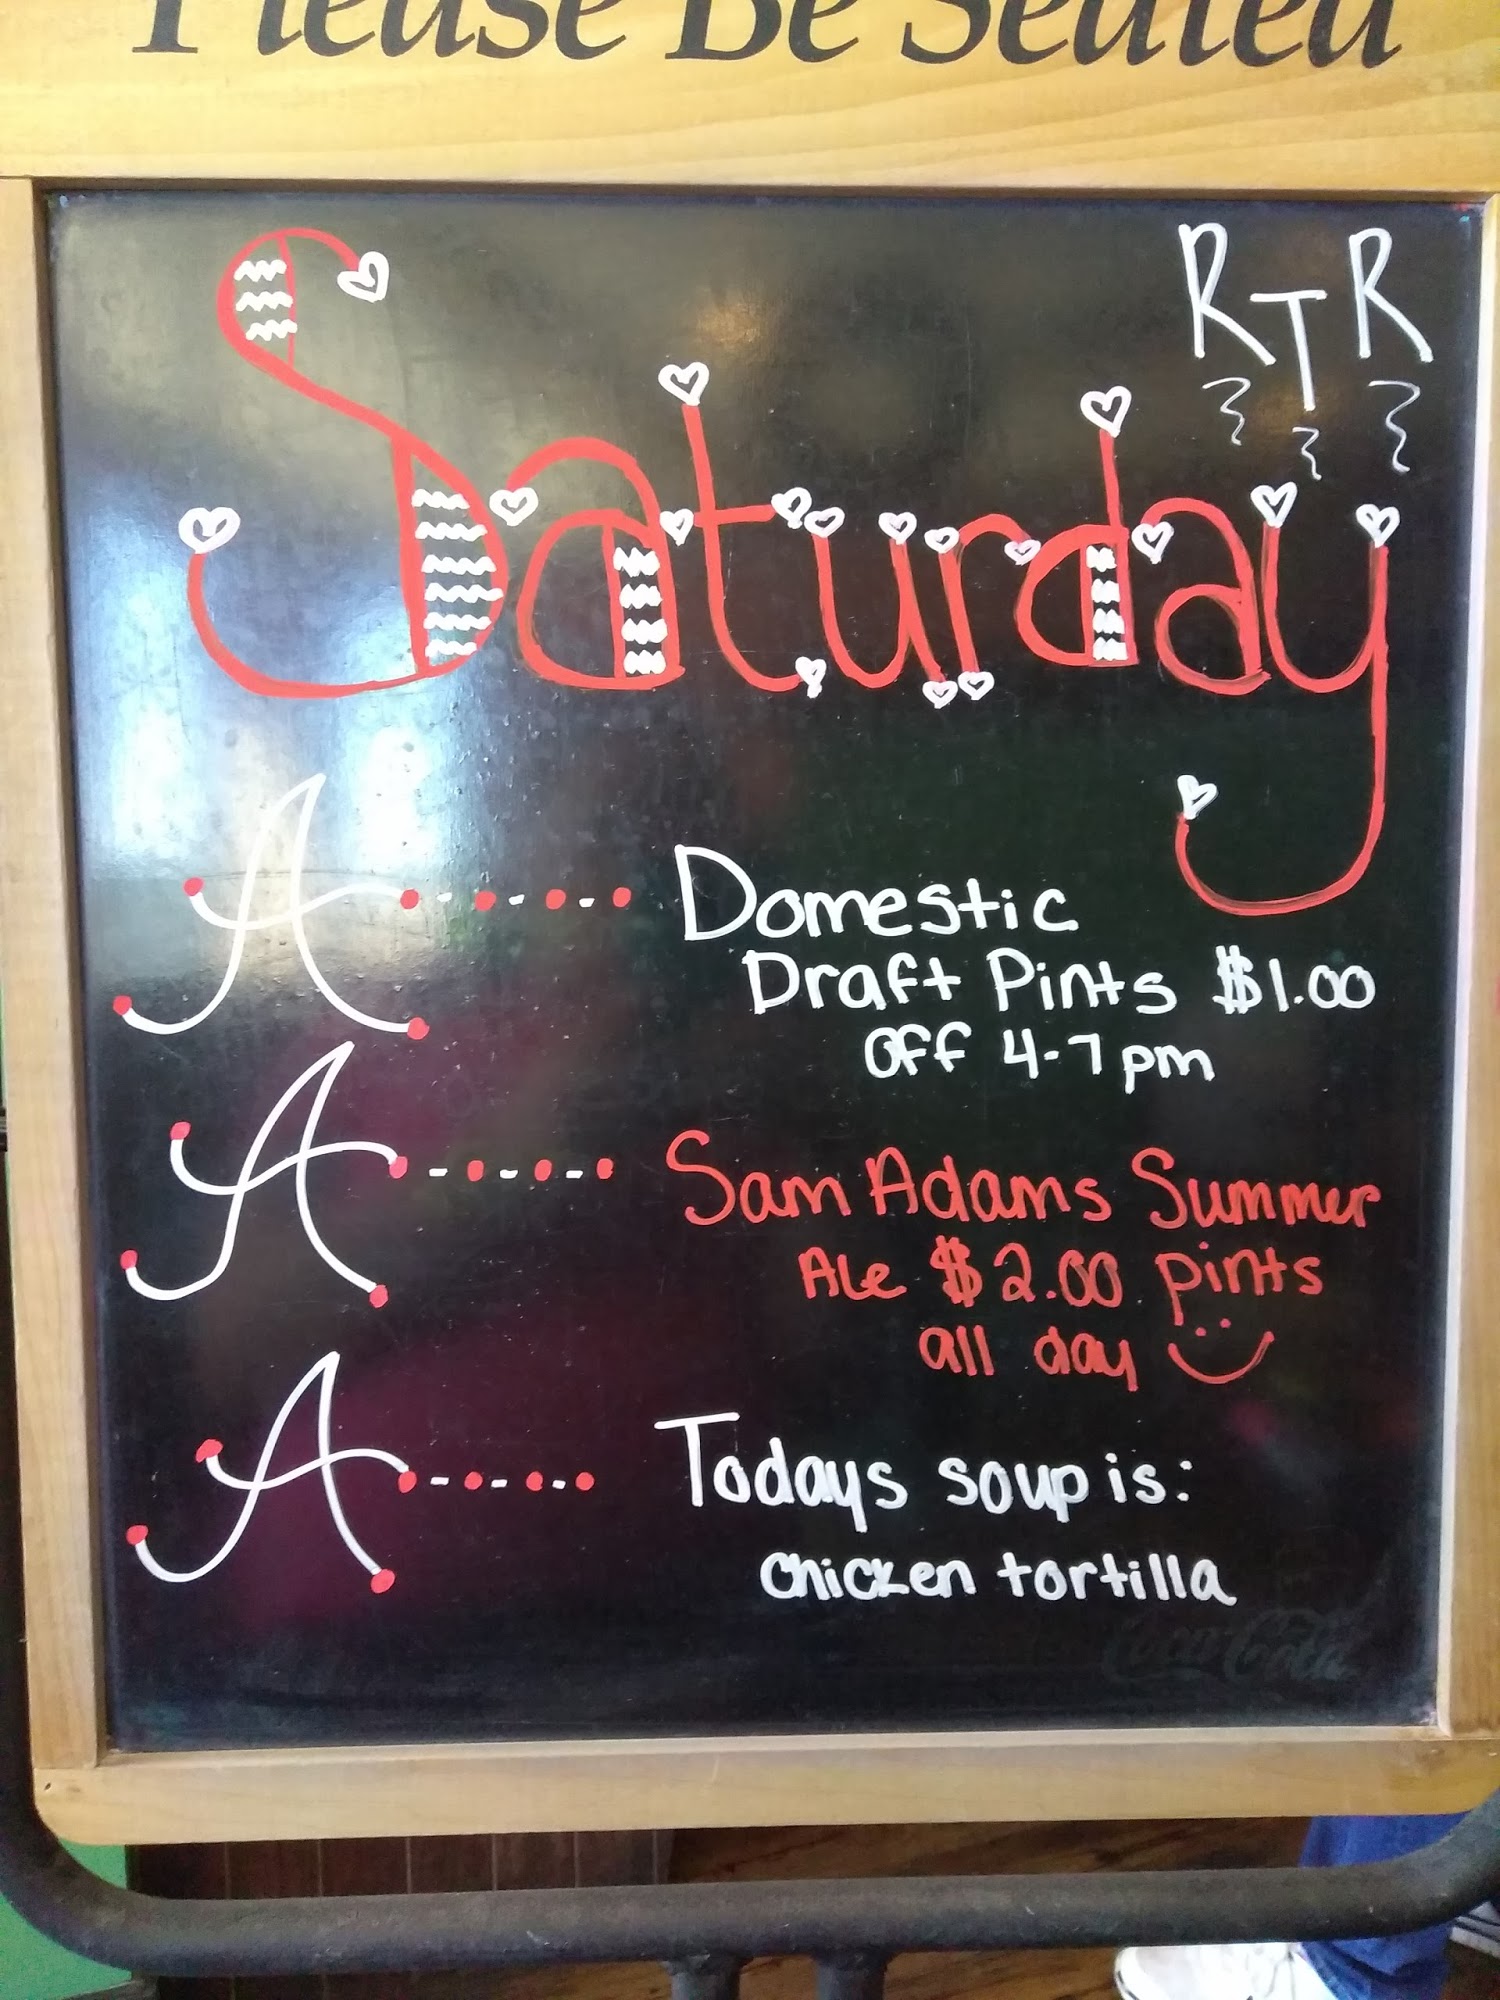 Please Be Seated
RTR
Saturday
A
Domestic
Draft Pints $1.00
off 4-7pm
A
Sam Adams Summer
Ale $2.00 pints
all day
A
Todays soup is:
chicken tortilla
Coca-Cola